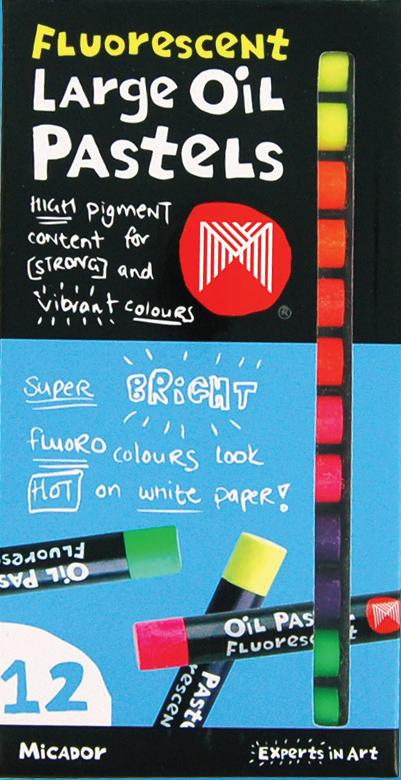 Fluorescent
Large Oil
Pastels
HIGH pigment
content for
[STRONG] and
vibrant colours
®
Super BRIGHT
fluoro colours look
HOT on white paper!
Oil Pas
Fluoresc
Oil Pas
Fluoresc
Paste
rescen
12
Micador
Experts in Art